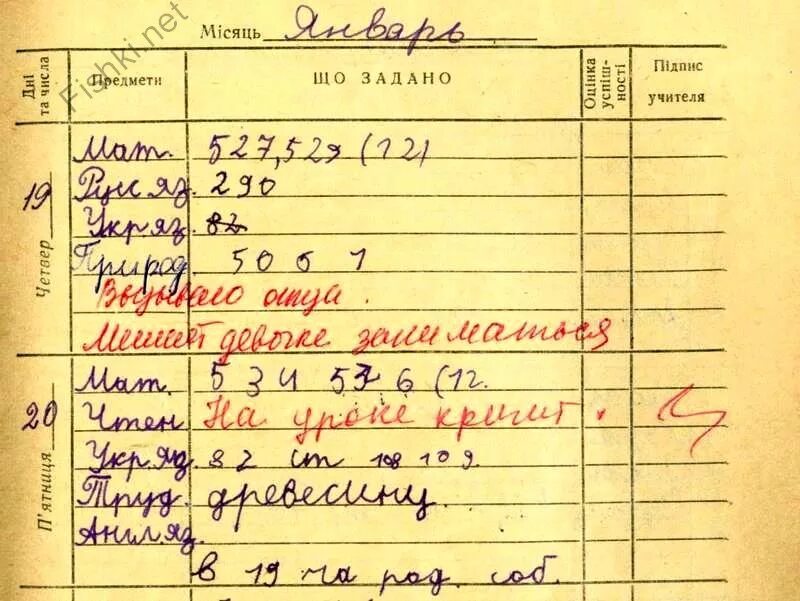 Fishki.net
Місяць Январь
Дні та числа Предмети ЩО ЗАДАНО Оцінка успіш-ності Підпис учителя
19 Четвер
Мат. 527,529 (12)
Рус яз. 290
Укр.яз. 82
Природ. 50 б 1
Вызываю отца.
Мешает девочке заниматься
20 П'ятниця
Мат. 5 3 4 53 6 (12.
Чтен На уроке кричит.
Укр.яз. 82 ст 108 109.
Труд. древесину.
Англ.яз.
в 19 ча род. соб.